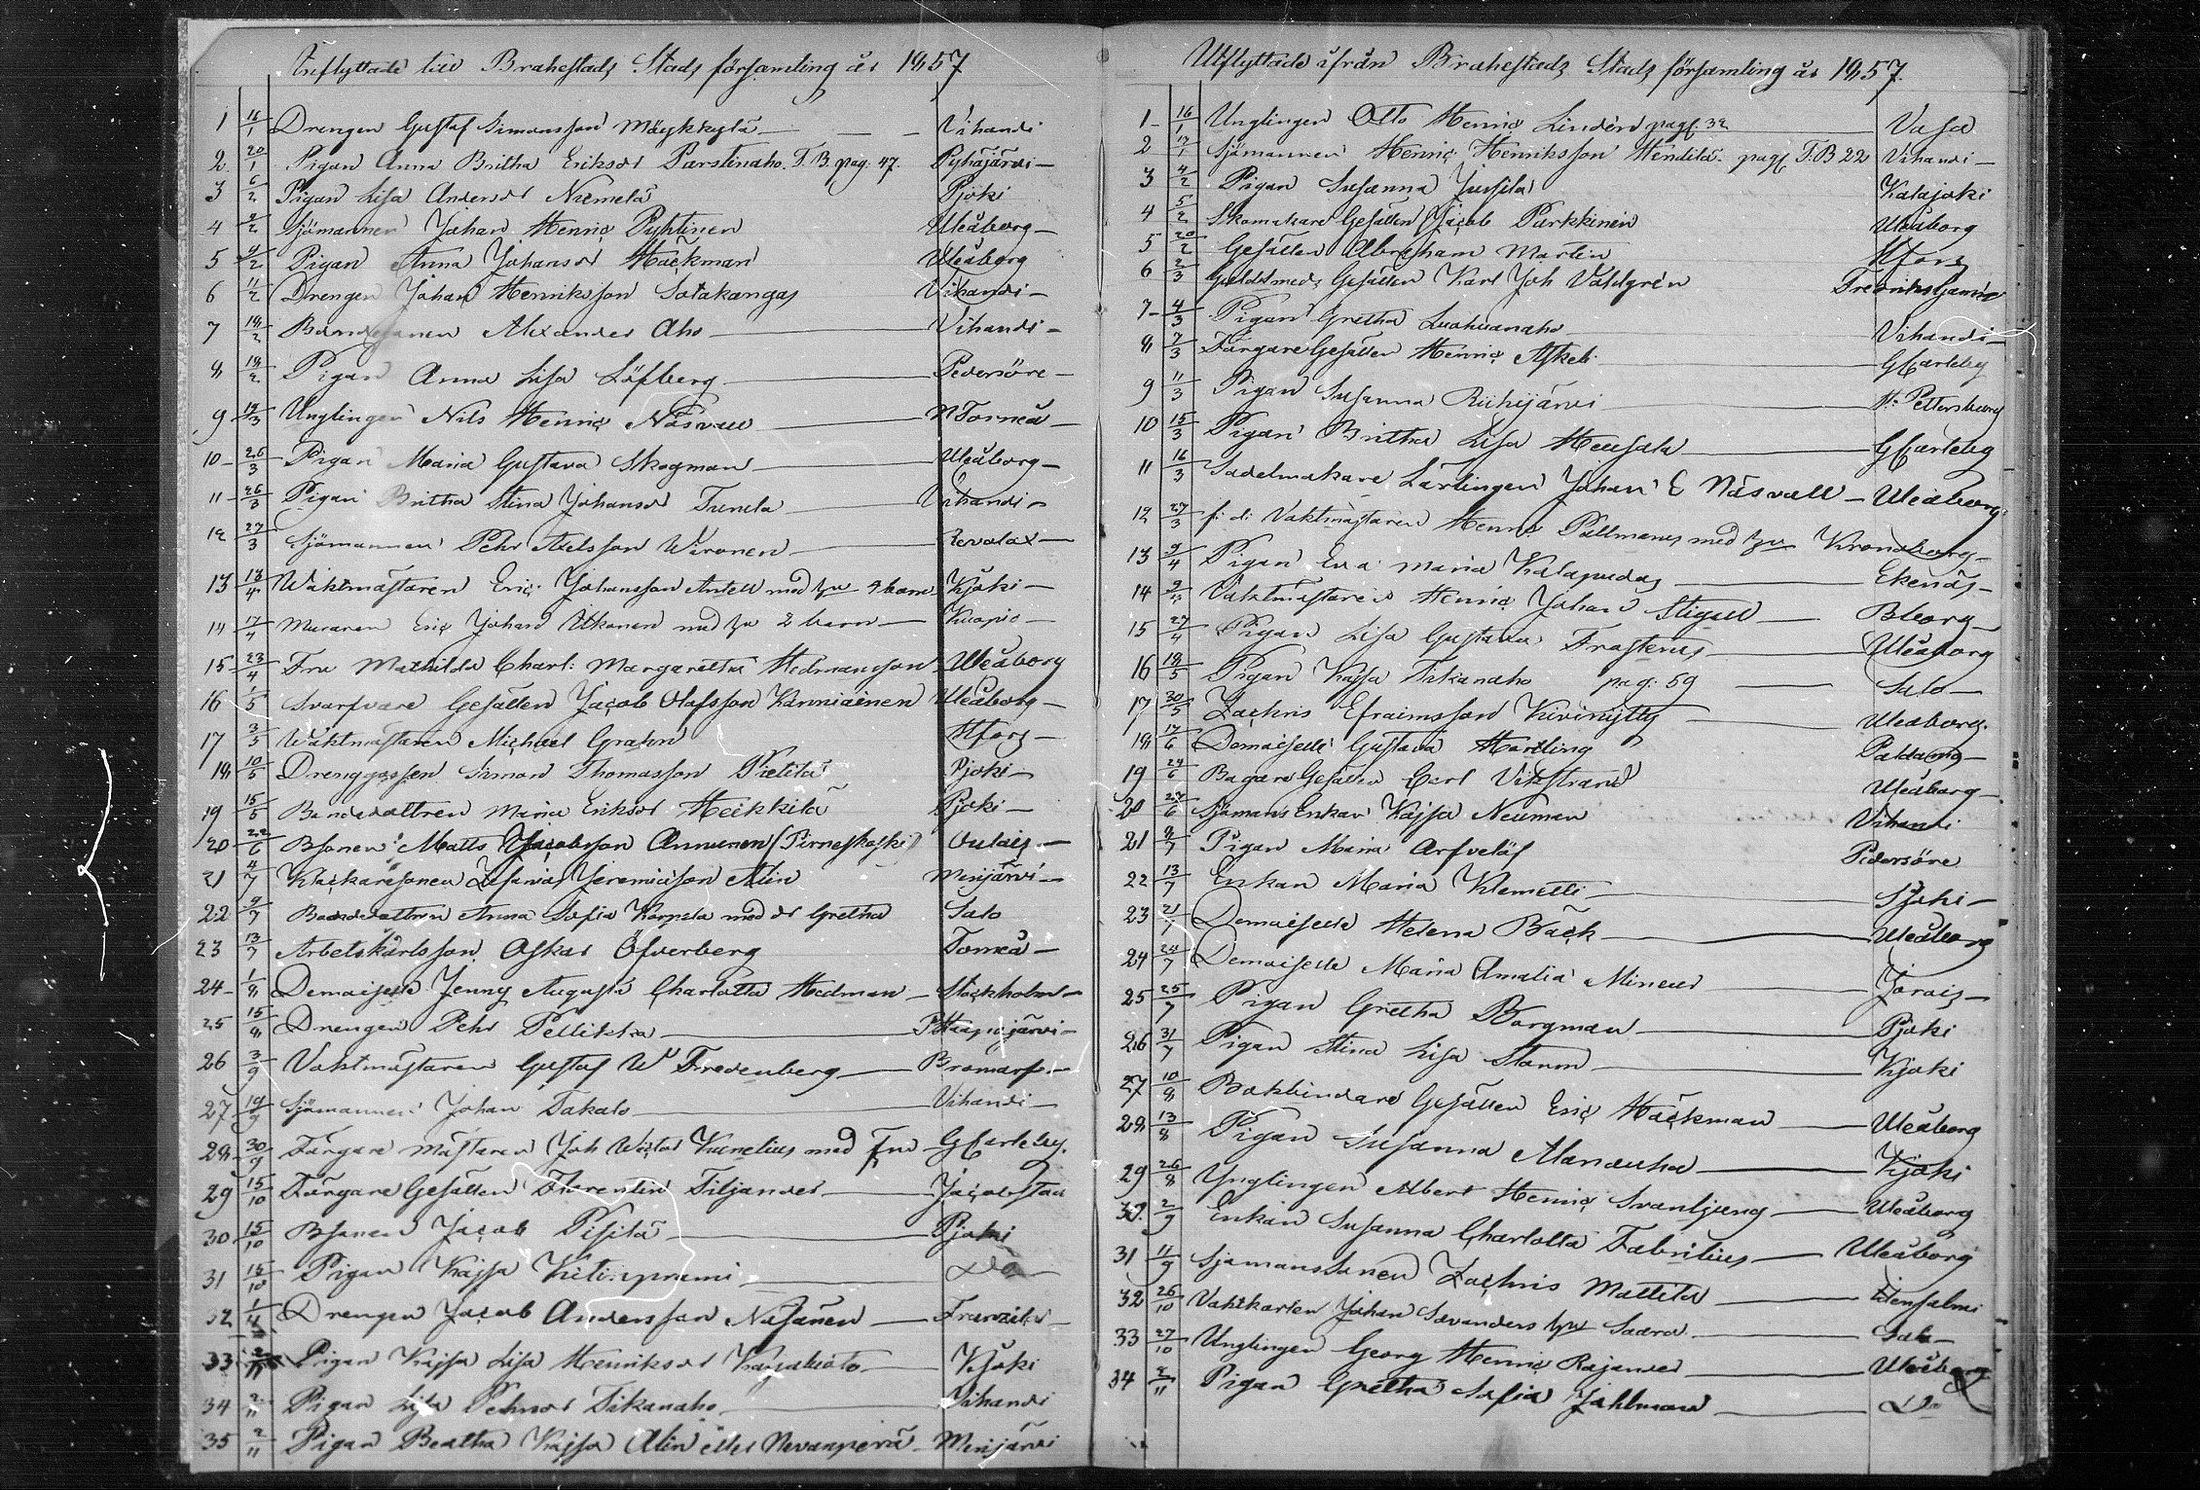 Inflyttade till Brahestads Stads församling år 1857
1 16/1 Drengen Gustaf Simonsson Mäykkylä Vihandi
2 20/1 Pigan Anna Britha Eriksdr Parstinaho. T.B pag. 47. Pyhäjärvi
3 6/2 Pigan Lisa Andersdr Niemelä Pjoki
4 9/2 Sjömannen Johan Henric Pyhtinen Uleåborg
5 9/2 Pigan Anna Johansdr Häckman Uleåborg
6 11/2 Drengen Johan Henriksson Satakangas Vihandi
7 18/2 Bondesonen Alexander Aho Vihandi
8 18/2 Pigan Anna Lisa Löfberg Pedersöre
9 14/3 Unglingen Nils Henric Näsvall N Torneå
10 26/3 Pigan Maria Gustava Skogman Uleåborg
11 26/3 Pigan Britha Stina Johansdr Tunela Vihandi
12 27/3 Sjömannen Pehr Axelsson Wironen Revolax
13 13/4 Waktmästaren Eric Johansson Antell med hu 4 barn Kjoki
14 17/4 Muraren Eric Johan Itkonen med hu 2 barn Kuopio
15 23/4 Fru Mathilda Charl: Margaretha Hedmansson Uleåborg
16 1/5 Svarfvare Gesällen Jacob Olofsson Kärniäinen Uleåborg
17 3/5 Waktmästaren Michael Grahn Hfors
18 10/5 Drenggossen Simon Thomasson Pietilä Pjoki
19 15/5 Bondedottren Maria Eriksdr Heikkilä Pjoki
20 22/6 Bsonen Matts Jacobsson Annunen (Pirneskoski) Oulais
21 4/7 Kackaresonen Zefanias Jeremiasson Alin Merijärvi
22 9/7 Bondedottren Anna Sofia Korpela med dr Gretha Salo
23 13/7 Arbetskarlsson Oskar Öfverberg Torneå
24 1/8 Demoiselle Jenny Augusta Charlotta Hedman Stockholm
25 15/8 Drengen Pehr Pellikka Haapajärvi
26 3/9 Vaktmästaren Gustaf W Fredenberg Bromarf
27 19/9 Sjömannen Johan Takalo Vihandi
28 30/9 Färgare mästaren Joh Victor Kunelius med Fru GCarleby.
29 15/10 Färgare Gesällen Florentin Tiljander Jacobstad
30 15/10 Bsonen Jacob Pisilä Pjoki
31 18/10 Pigan Kajsa Do
32 1/11 Drengen Jacob Andersson Näsänen Frantzila
33 2/11 Pigan Kajsa Lisa Henriksdr Kjoki
34 2/11 Pigan Lisa Pehrsdr Tikanaho Vihandi
35 2/11 Pigan Beatha Kajsa Alin eller Nevanperä Merijärvi
Utflyttade ifrån Brahestads Stads församling år 1857.
1 16/1 Unglingen Otto Henric Lindén pag. 32 Vasa
2 17/1 Sjömannen Henric Henriksson Hendilä. pag T.B 22 Vihandi
3 4/2 Pigan Susanna Jussila Kalajoki
4 5/2 Skomakare Gesällen Jacob Parkkinen Uleåborg
5 20/2 Gesällen Abraham Martin Hfors
6 2/3 Guldsmeds Gesällen Karl Joh Valdgrén Fredrikshamn
7 4/3 Pigan Gretha Luohuanaho Vihandi
8 7/3 Färgare Gesällen Henric Askeli GCarleby
9 11/3 Pigan Susanna Riihijärvi St. Pettersburg
10 15/3 Pigan Britha Lisa Heusala GCarleby
11 16/3 Sadelmakare Lärlingen Johan E Näsvall Uleåborg
12 27/3 f. d: Vaktmästaren Henric Pållmans med hu Kronoborg
13 9/4 Pigan Eva Maria Kalapudas Ekenäs
14 9/4 Vaktmästaren Henric Johan Stigell Bborg
15 27/4 Pigan Lisa Gustava Frosterus Uleåborg
16 18/5 Pigan Kajsa Tikanaho pag: 59 Salo
17 30/5 Zachris Efraimsson Kivinjitty Uleåborg.
18 17/6 Demoiselle Gustava Hartling Paldamo
19 24/6 Bagare Gesällen Carl Vikstrand Uleåborg
20 27/6 Sjömans Enkan Kajsa Neuman Vihandi
21 9/7 Pigan Maria Arfvelöf Pedersöre
22 13/7 Enkan Maria Klemetti Sjoki
23 21/7 Demoiselle Helena Bäck Uleåborg
24 24/7 Demoiselle Maria Amalia Mineur Jorois
25 25/7 Pigan Gretha Borgman Pjoki
26 31/7 Pigan Stina Lisa Storm Kjoki
27 10/8 Bokbindare Gesällen Eric Häckman Uleåborg
28 13/8 Pigan Susanna Alanauha Kjoki
29 26/8 Ynglingen Albert Henric Svanljung Uleåborg
30. 2/9 Enkan Susanna Charlotta Fabritius Uleåborg
31 11/9 Sjömanssonen Zachris Mattila Idensalmi
32 26/10 Vaktkarlen Johan Savanders hu Saara Salo
33 27/10 Unglingen Georg Henric Rajander Uleåborg
34 2/11 Pigan Gretha Sofia Jahlman Do